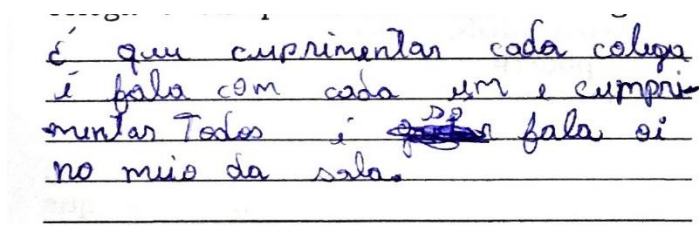 é quu cuprimentar cada colega
é fala com cada um e cumpri-
mentar Todos é só fala oi
no meio da sala.